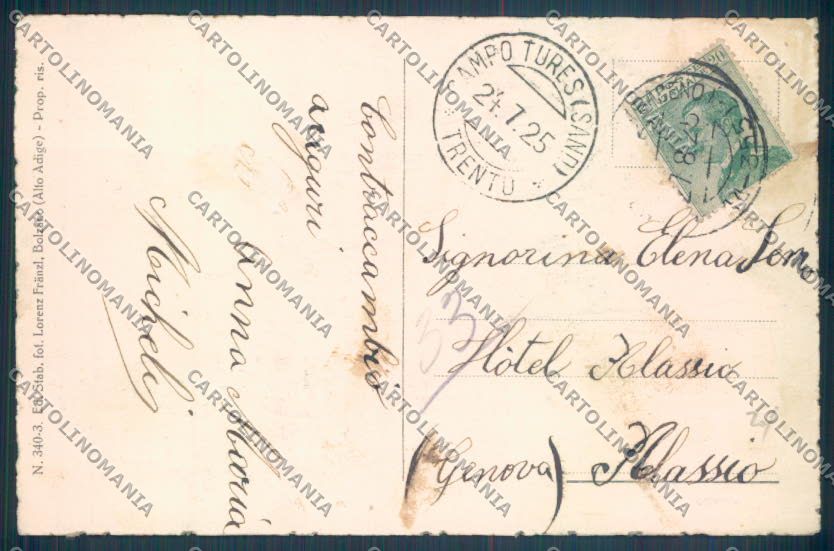 N. 340-3. Ed. Stab. fot. Lorenz Fränzl, Bolzano (Alto Adige) - Prop. ris.
Contraccambio
auguri
Anna Maria
Micheli
CAMPO TURES (SAND)
24.7.25
* TRENTO *
Signorina Elena
Hôtel Alassio
(Genova) Alassio
33
CARTOLINOMANIA